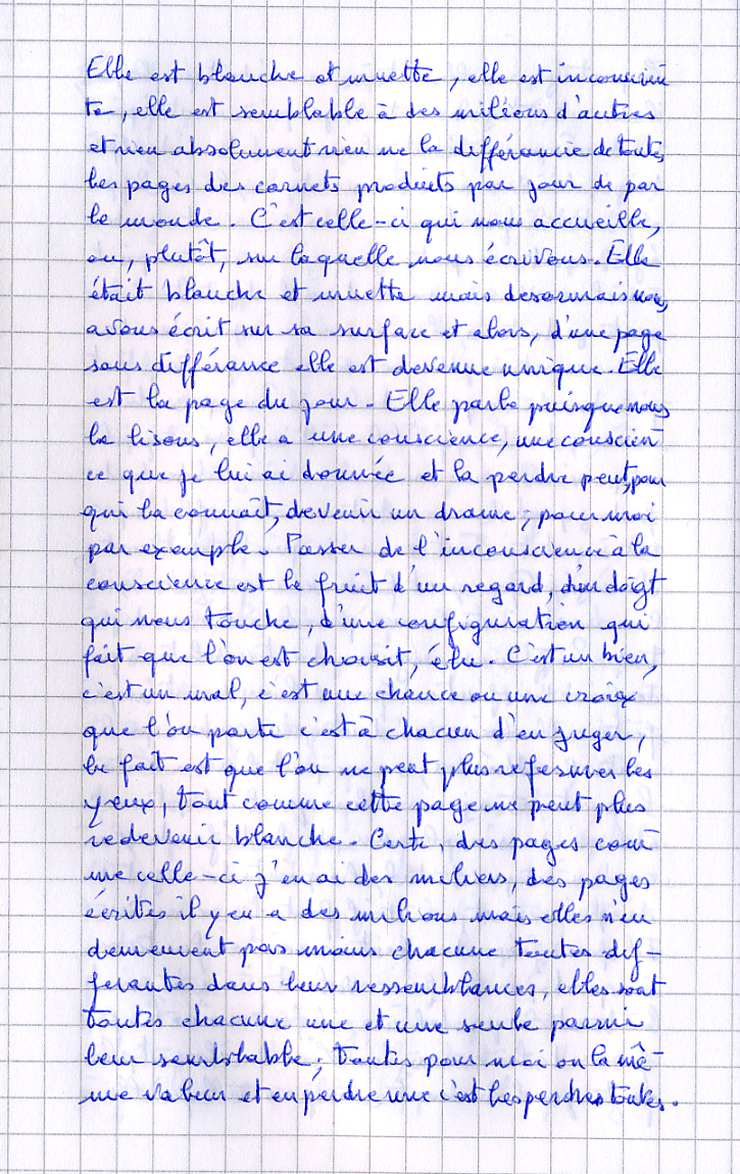 Elle est blanche et muette, elle est inconscien
te, elle est semblable à des milieons d'autres
et rien absolument rien ne la différancie de toutes
les pages des carnets produits par jour de par
le monde. C'est celle-ci qui nous accueille,
ou, plutôt, sur laquelle nous écrivons. Elle
était blanche et muette mais desormais nous
avons écrit sur sa surface et alors, d'une page
sans différance elle est devenue unique. Elle
est la page du jour. Elle parle puisque nous
la lisons, elle a une conscience, une conscien
ce que je lui ai donnée et la perdre peut, pour
qui la connaît, devenir un drame; pour moi
par example. Passer de l'inconscience à la
conscience est le fruit d'un regard, d'un doigt
qui nous touche, d'une configuration qui
fait que l'on est choisit, élu. C'est un bien,
c'est un mal, c'est une chance ou une croix
que l'on porte c'est à chacun d'en juger,
le fait est que l'on ne peut plus refermer les
yeux, tout comme cette page ne peut plus
redevenir blanche. Certe, des pages com
me celle-ci j'en ai des milliers, des pages
écrites il y en a des milions mais elles n'en
demeurent pas moins chacune toutes dif-
ferantes dans leur ressemblances, elles sont
toutes chacune une et une seule parmi
leur semblable; toutes pour moi on la mê-
me valeur et en perdre une c'est les perdres toutes.